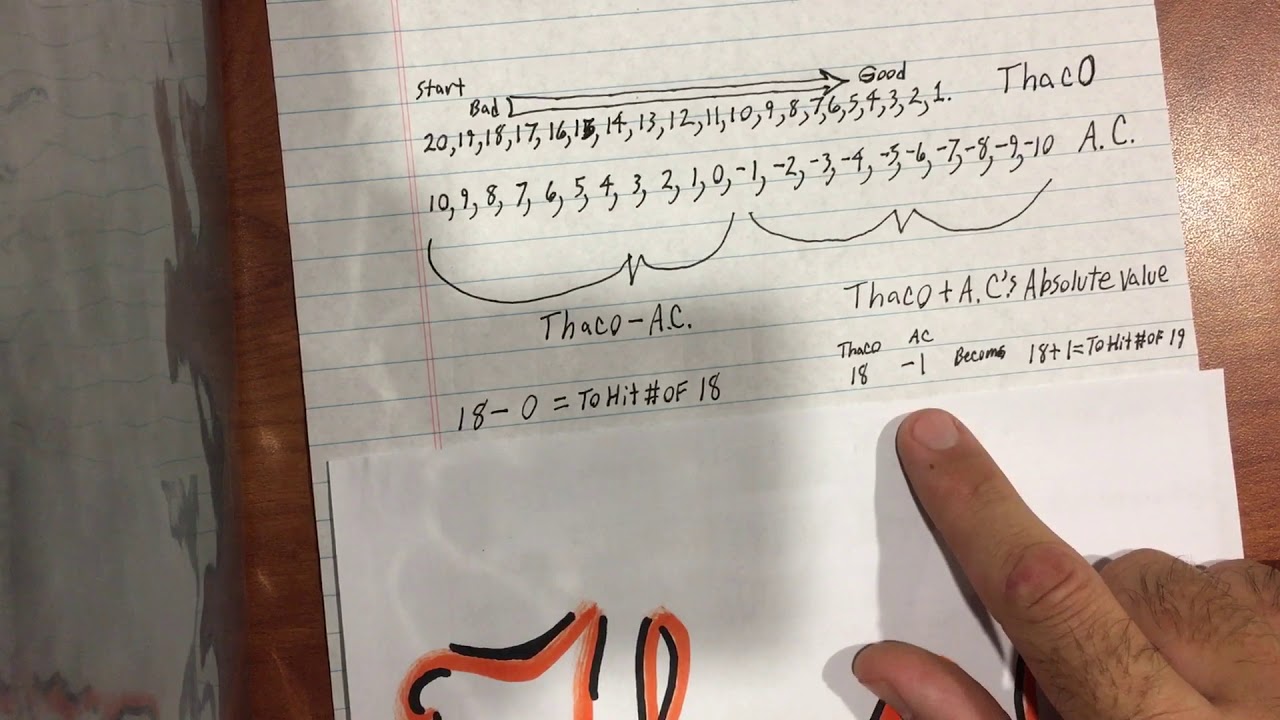 Start
Bad Good
Thac0
20, 19, 18, 17, 16, 15, 14, 13, 12, 11, 10, 9, 8, 7, 6, 5, 4, 3, 2, 1.
10, 9, 8, 7, 6, 5, 4, 3, 2, 1, 0, -1, -2, -3, -4, -5, -6, -7, -8, -9, -10 A.C.
Thac0 - A.C.
Thac0 + A.C's Absolute value
Thac0 AC
18 -1 Becoms 18+1 = To Hit # OF 19
18 - 0 = To Hit # OF 18